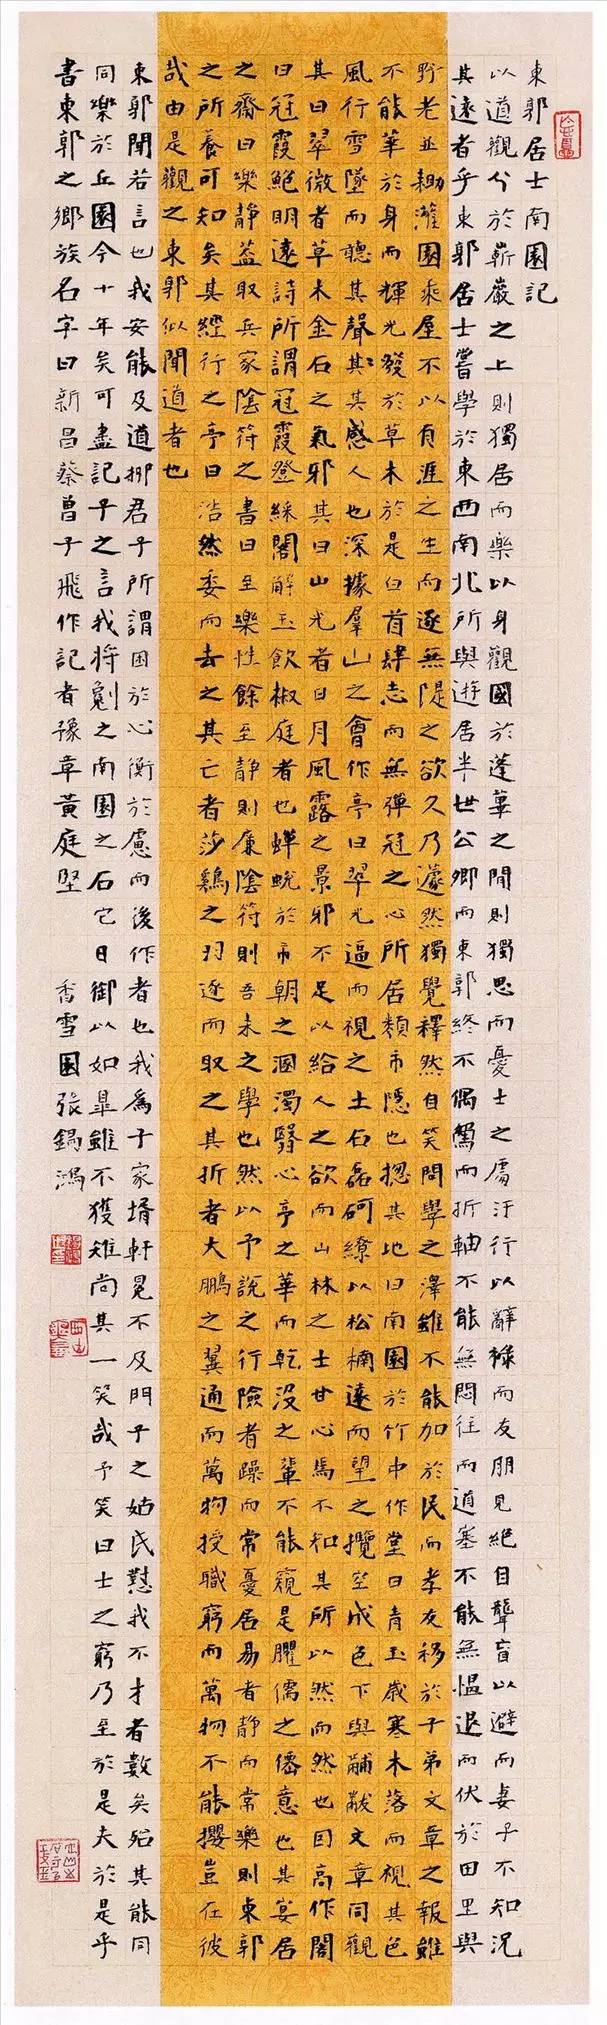 東郭居士南園記
以道觀分於嶄巖之上則獨居而樂以身觀國於蓬蓽之間則獨思而憂士之處汙行以辭祿而友朋見絕自聾盲以避而妻子不知況
其遠者乎東郭居士嘗學於東西南北所與遊居半世公卿而東郭終不偶駕而折軸不能無悶往而道塞不能無慍退而伏於田里與
野老並耡灌園乘屋不以有涯之生而逐無隄之欲久乃蘧然獨覺釋然自笑問學之澤雖不能加於民而孝友移於子弟文章之報雖
不能華於身而輝光發於草木於是白首肆志而無彈冠之心所居類市隱也摠其地曰南園於竹中作堂曰青玉歲寒木落而視其色
風行雪墜而聽其聲其感人也深據羣山之會作亭曰翠光逼而視之土石磊砢繚以松楠遠而望之攬空成色下與黼黻文章同觀
其曰翠微者草木金石之氣邪其曰山光者日月風露之景邪不足以給人之欲而山林之士甘心焉不知其所以然而然也因高作閣
曰冠霞鮑明遠詩所謂冠霞登綵閣解玉飲椒庭者也蟬蛻於市朝之溷濁翳心亭之華而乾沒之輩不能窺是臞儒之僊意也其宴居
之齋曰樂靜蓋取兵家陰符之書曰至樂性餘至靜則廉陰符則吾未之學也然以予說之行險者躁而常憂居易者靜而常樂則東郭
之所養可知矣其經行之亭曰浩然委而去之其亡者莎鷄之羽逐而取之其折者大鵬之翼通而萬物授職窮而萬物不能攖豈在彼
哉由是觀之東郭似聞道者也
東郭聞若言也我安能及道抑君子所謂困於心衡於慮而後作者也我爲子家壻軒冕不及門子之姑氏懟我不才者數矣殆其能同
同樂於丘園今十年矣可盡記子之言我將劖之南園之石它日御以如皐雖不獲雉尚其一笑哉予笑曰士之窮乃至於是夫於是乎
書東郭之鄉族名字曰新昌蔡曾子飛作記者豫章黃庭堅
香雪園張錫鴻